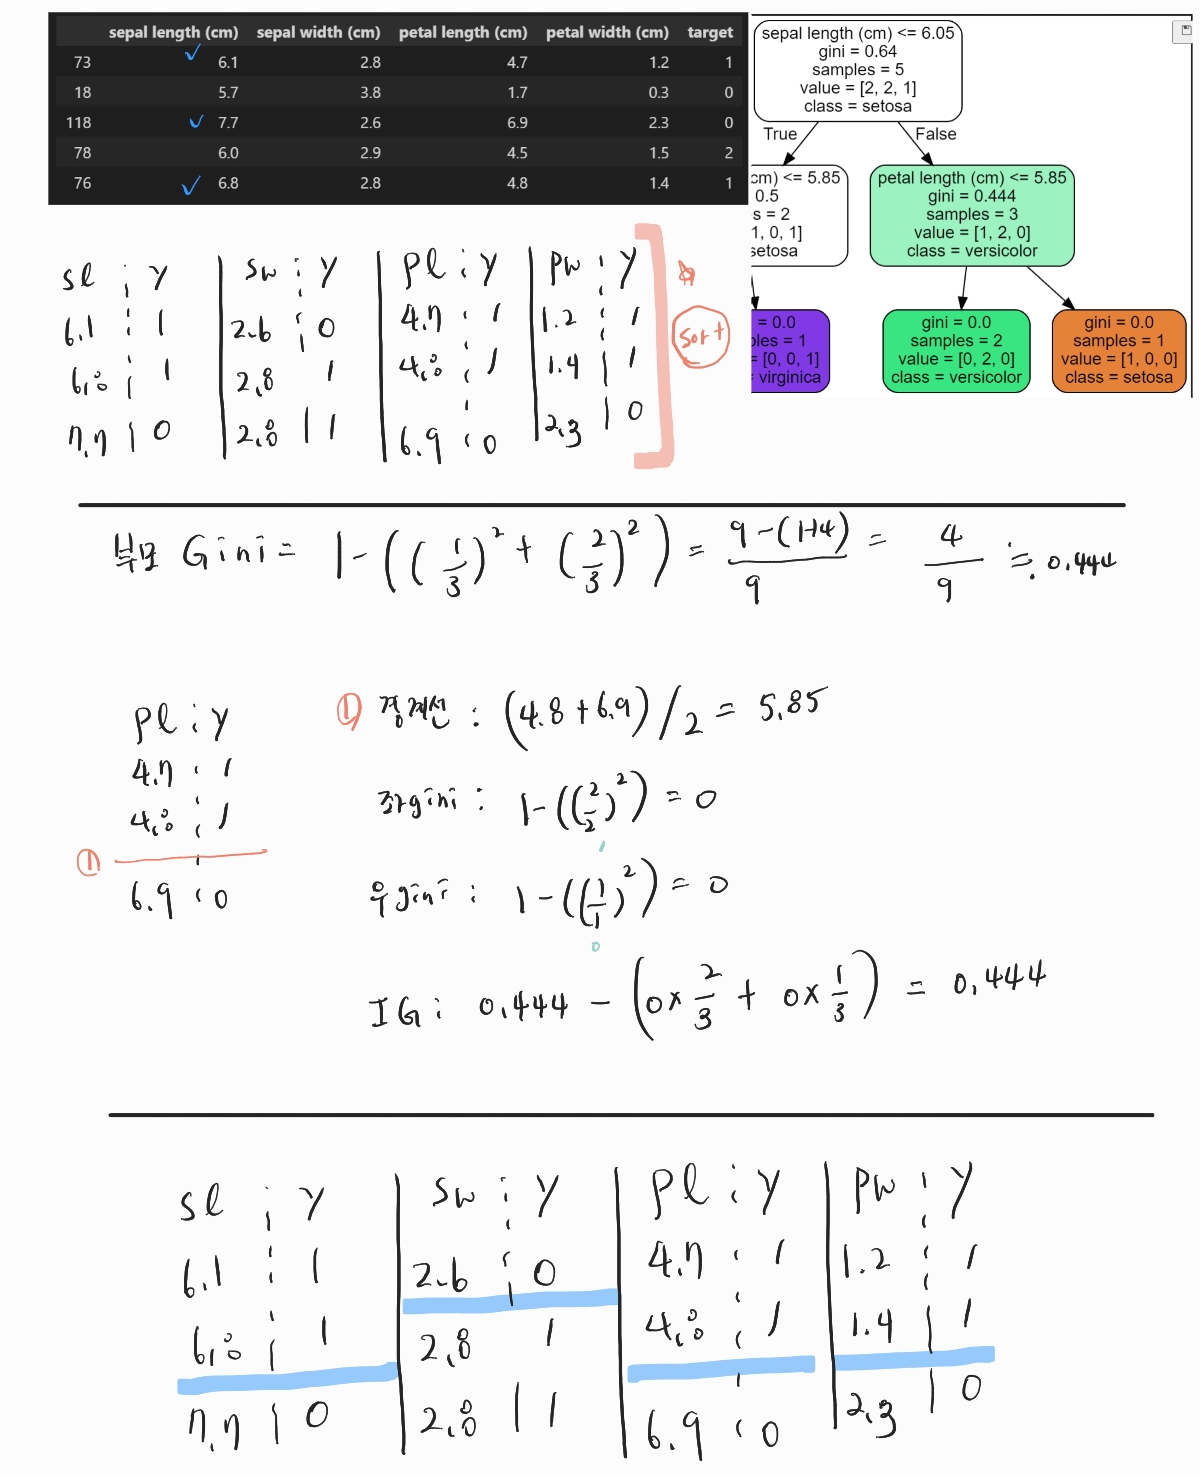 sepal length (cm) sepal width (cm) petal length (cm) petal width (cm) target
73 6.1 2.8 4.7 1.2 1
18 5.7 3.8 1.7 0.3 0
118 7.7 2.6 6.9 2.3 0
78 6.0 2.9 4.5 1.5 2
76 6.8 2.8 4.8 1.4 1
sepal length (cm) <= 6.05
gini = 0.64
samples = 5
value = [2, 2, 1]
class = setosa
True False
cm) <= 5.85
0.5
s = 2
1, 0, 1]
setosa
petal length (cm) <= 5.85
gini = 0.444
samples = 3
value = [1, 2, 0]
class = versicolor
= 0.0
les = 1
= [0, 0, 1]
virginica
gini = 0.0
samples = 2
value = [0, 2, 0]
class = versicolor
gini = 0.0
samples = 1
value = [1, 0, 0]
class = setosa
sl y sw y pl y pw y
6.1 1 2.6 0 4.7 1 1.2 1
6.8 1 2.8 1 4.8 1 1.4 1
7.7 0 2.8 1 6.9 0 2.3 0
Sort
부모 Gini = 1 - ((1/3)² + (2/3)²) = 9-(1+4)/9 = 4/9 ≒ 0.444
pl y
4.7 1
4.8 1
①
6.9 0
① 경계선 : (4.8 + 6.9) / 2 = 5.85
좌gini : 1 - ((2/2)²) = 0
1
우gini : 1 - ((1/1)²) = 0
0
IG : 0.444 - (0 × 2/3 + 0 × 1/3) = 0.444
sl y sw y pl y pw y
6.1 1 2.6 0 4.7 1 1.2 1
6.8 1 2.8 1 4.8 1 1.4 1
7.7 0 2.8 1 6.9 0 2.3 0